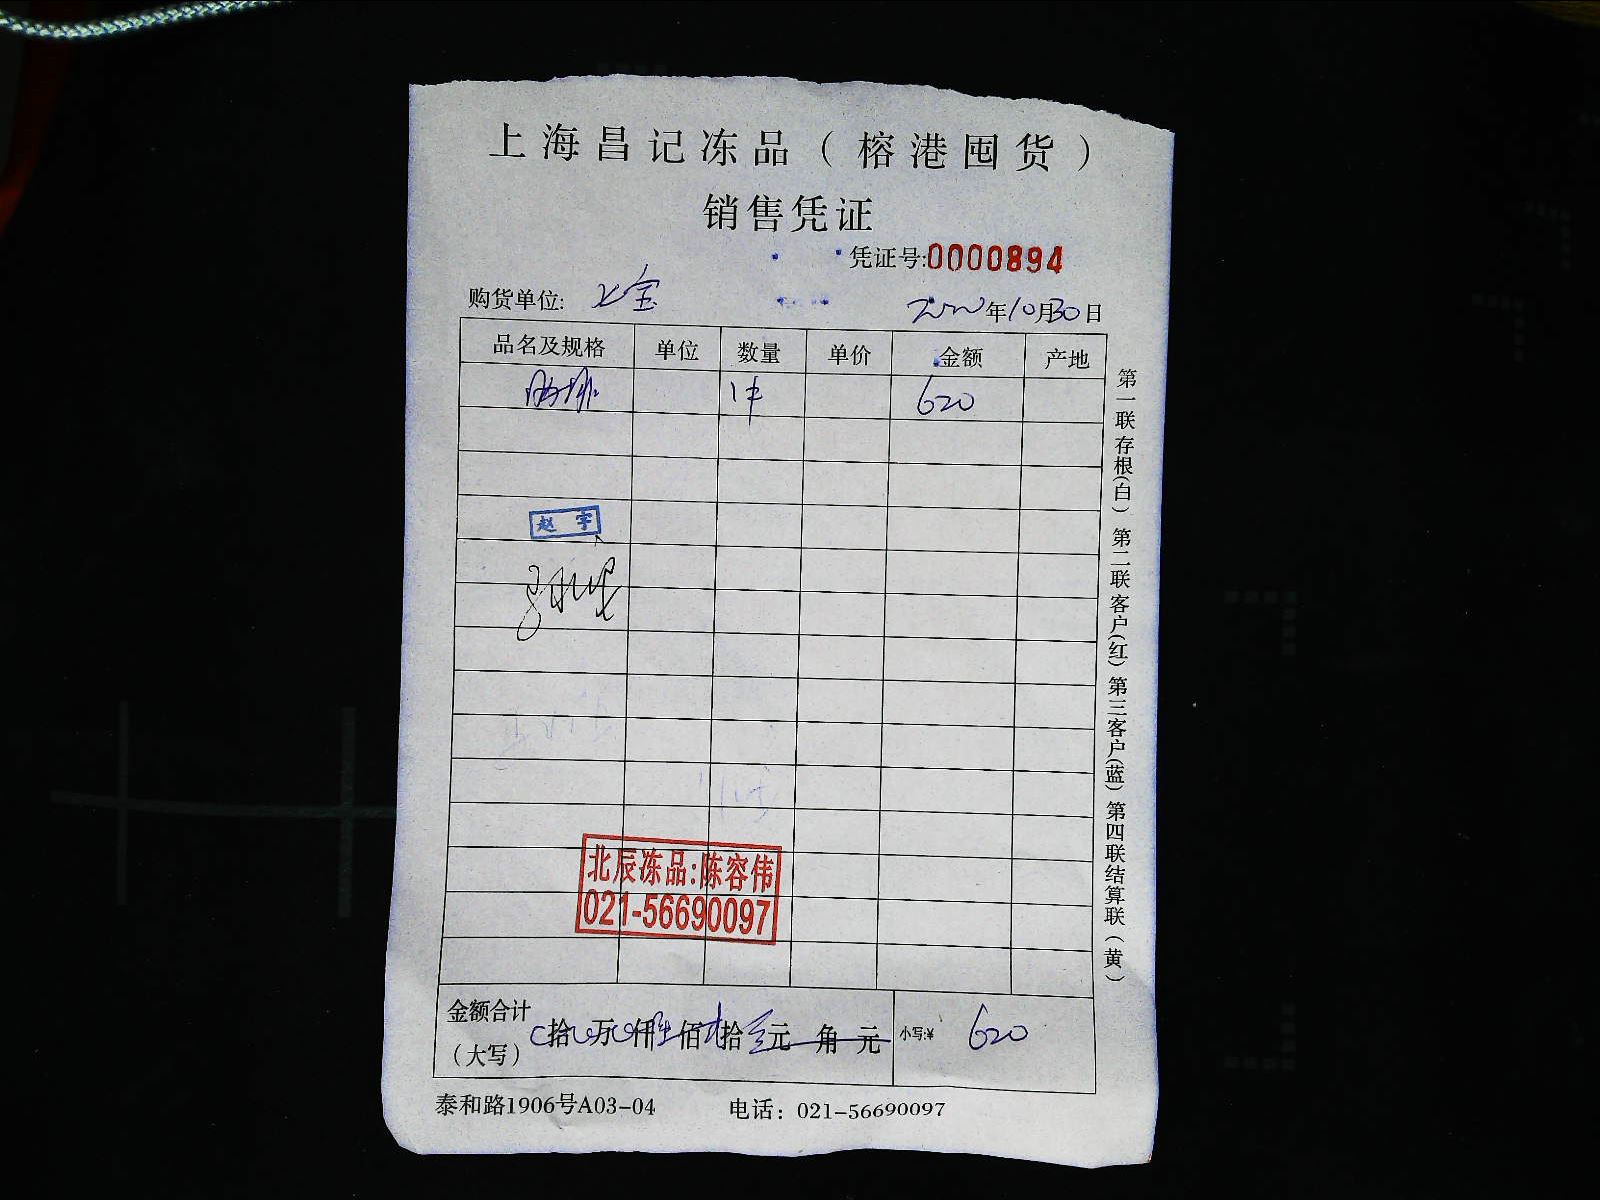 上海昌记冻品（榕港囤货）
销售凭证
凭证号:0000894
购货单位:
年10月30日
品名及规格 单位 数量 单价 金额 产地
1件 620
赵宇
北辰冻品:陈容伟
021-56690097
金额合计
（大写） 拾 万 仟 佰 拾 元 角 元 小写:¥ 620
泰和路1906号A03-04 电话：021-56690097
第一联存根(白) 第二联客户(红) 第三客户(蓝) 第四联结算联(黄)